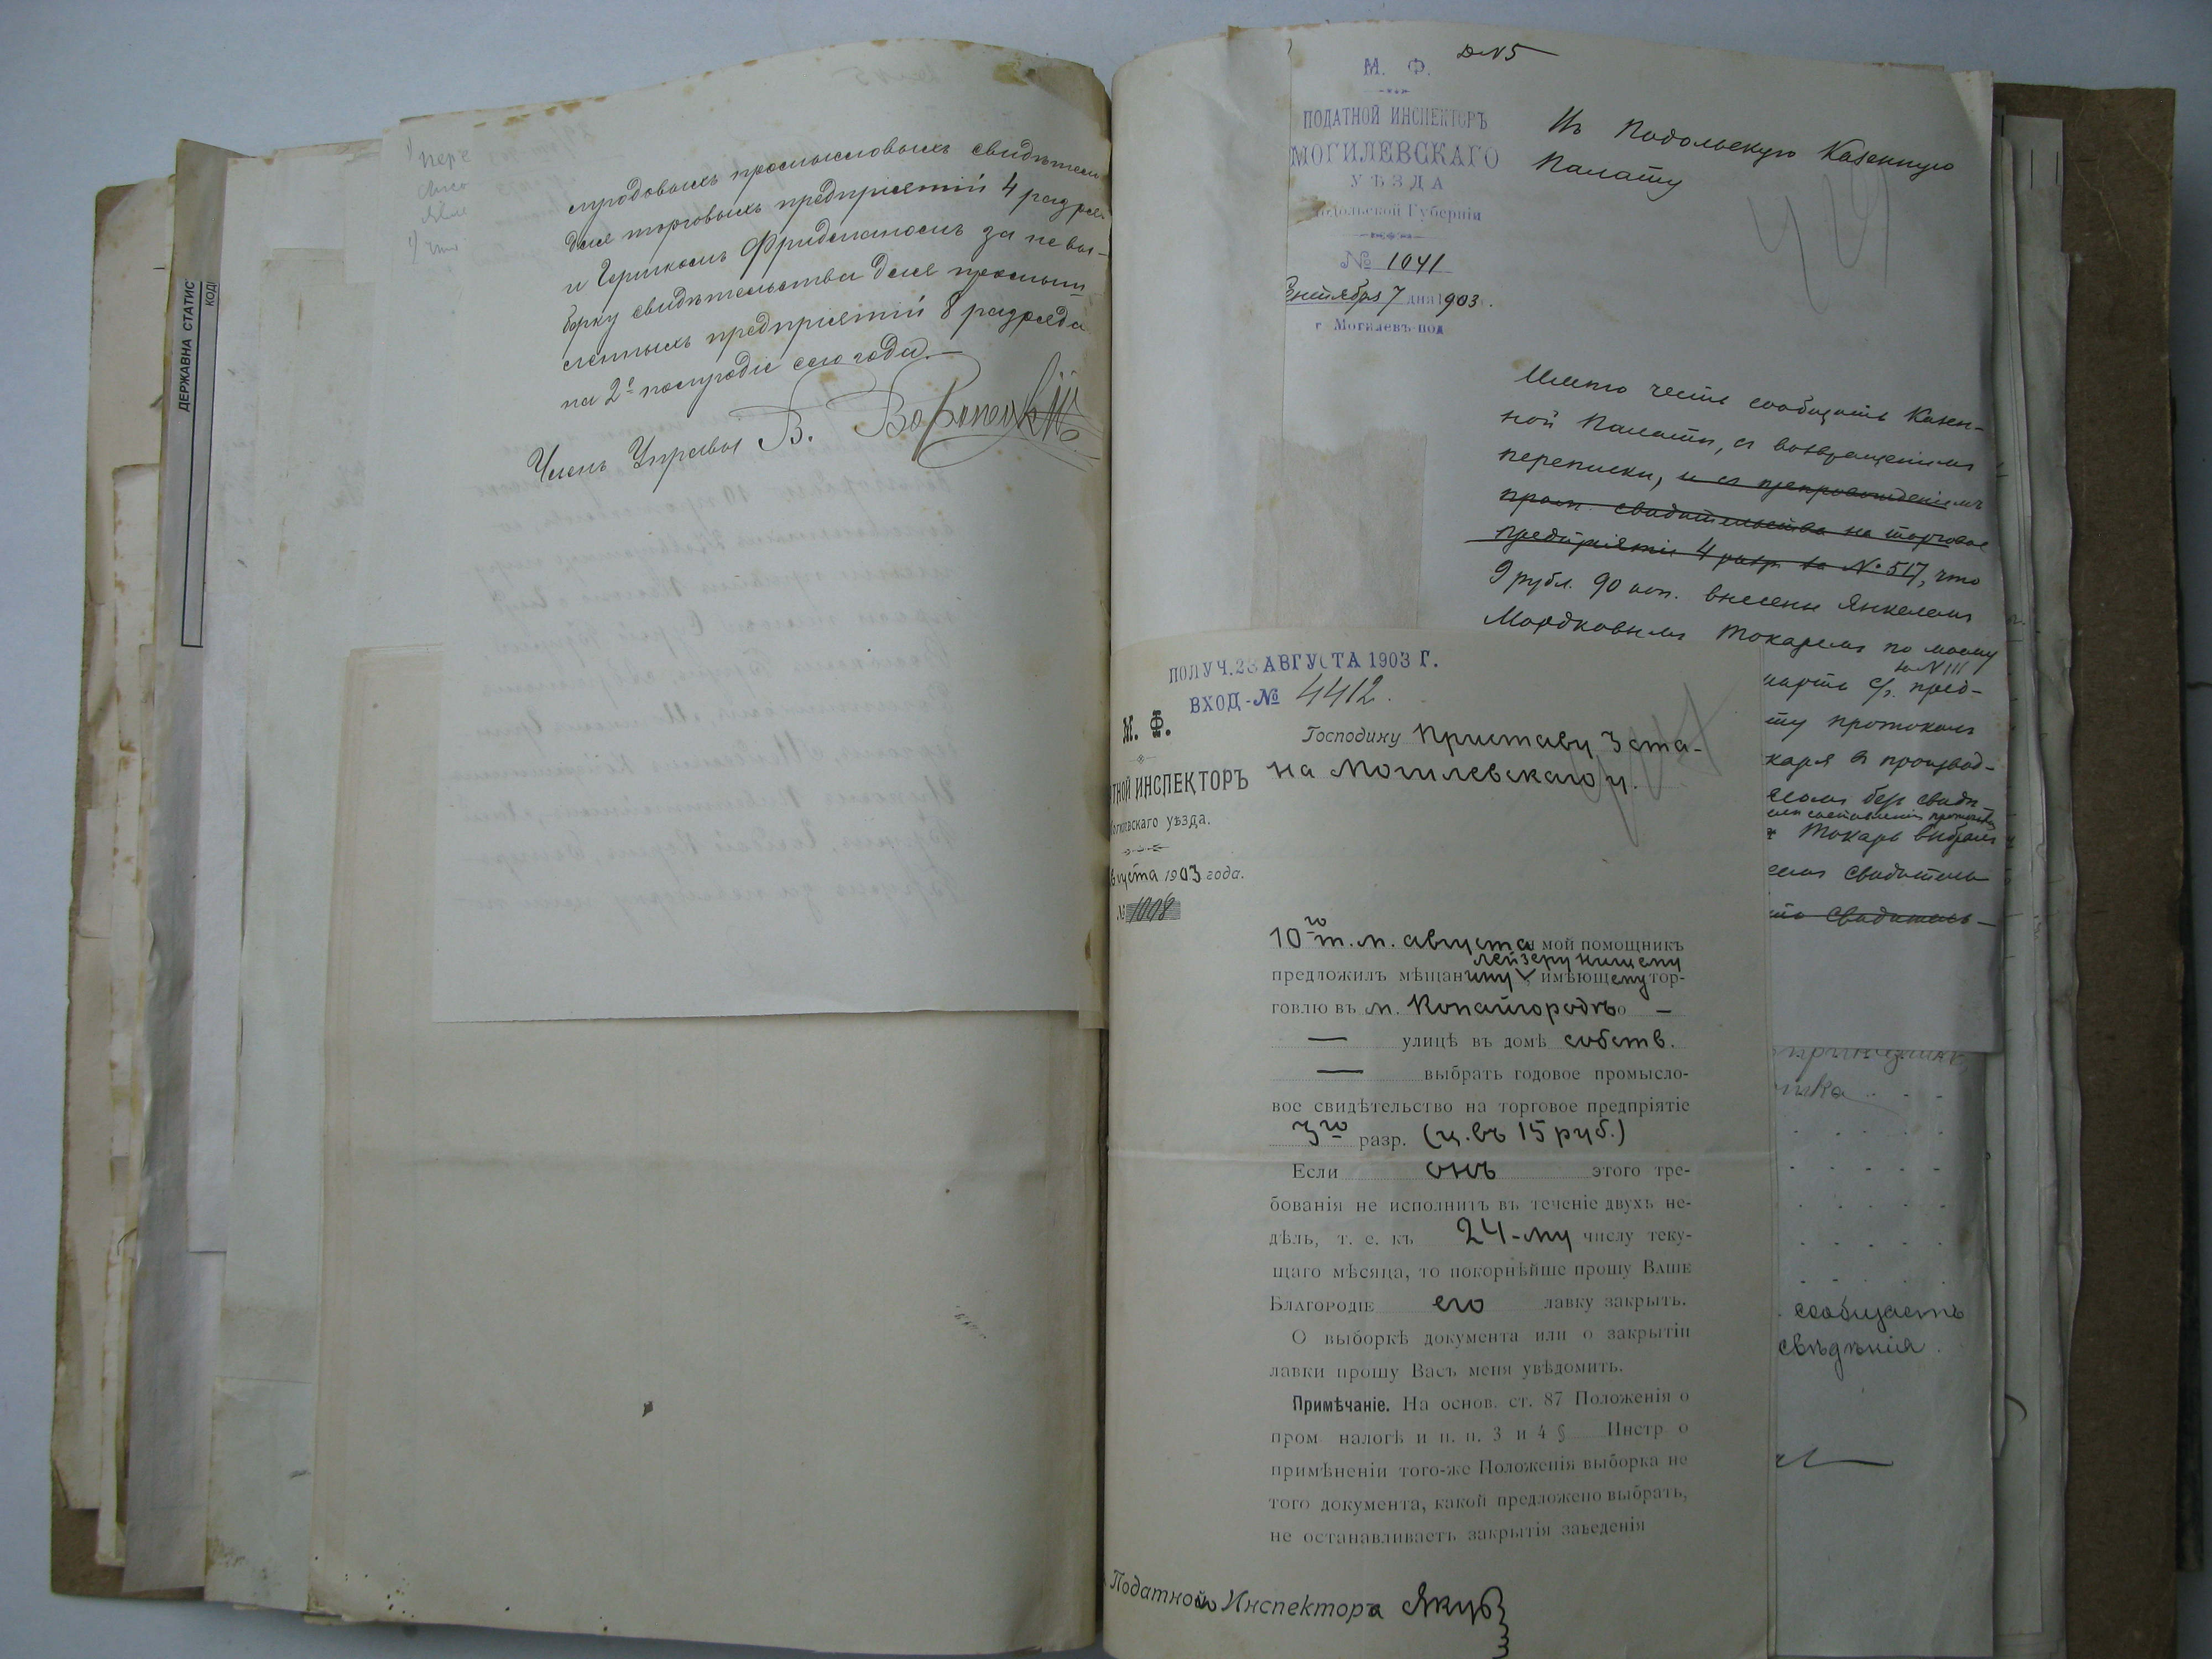 ДЕРЖАВНА СТАТИС
КОД
лугодовыхъ промысловыхъ свидѣтел
для торговыхъ предпріятій 4 разря
и Гершкомъ Фридманомъ за невы-
борку свидѣтельства для промыш
ленныхъ предпріятій 8 разряда
на 2е полугодіе сего года.-
Членъ Управы В.
№5
М. Ф.
ПОДАТНОЙ ИНСПЕКТОРЪ
МОГИЛЕВСКАГО
УѢЗДА
одольской Губерніи
№ 1041
Сентября 7 дня 1903.
г Могилевъ-под
Въ Подольскую Казенную
Палату
Имѣю честь сообщить Казен-
ной Палатѣ, съ возвращеніемъ
переписки, и съ препровожденіемъ
пром. свидѣтельства на торговое
предпріятіе 4 разр. за № 517, что
9 рубл. 90 коп. внесены Янкелемъ
Мордковымъ Токаремъ по моему
ПОЛУЧ. 23 АВГУСТА 1903 Г.
ВХОД-№ 4412.
М. Ф.
ТНОЙ ИНСПЕКТОРЪ
огилевскаго уѣзда.
вгуста 1903 года.
№ 1008
Господину Приставу 3 ста-
на Могилевскаго у.
10го т. м. августа мой помощникъ
Лейзеру Нищему
предложилъ мѣщанину, имѣющему тор-
говлю въ м. Копайгородѣ по —
— улицѣ въ домѣ собств.
— выбрать годовое промысло-
вое свидѣтельство на торговое предпріятіе
3го разр. (ц. въ 15 руб.)
Если онъ этого тре-
бованія не исполнитъ въ теченіе двухъ не-
дѣль, т. е. къ 24-му числу теку-
щаго мѣсяца, то покорнѣйше прошу ВАШЕ
БЛАГОРОДІЕ его лавку закрыть.
О выборкѣ документа или о закрытіи
лавки прошу Васъ меня увѣдомить.
Примѣчаніе. На основ. ст. 87 Положенія о
пром налогѣ и п. п. 3 и 4 § Инстр о
примѣненіи того-же Положенія выборка не
того документа, какой предложено выбрать,
не останавливаетъ закрытія заведенія
Податного Инспектора
пред-
ту протоколъ
каря въ производ-
Токарь выбралъ
свидѣтель
свидѣтель-
сообщаетъ
свѣдѣнія.